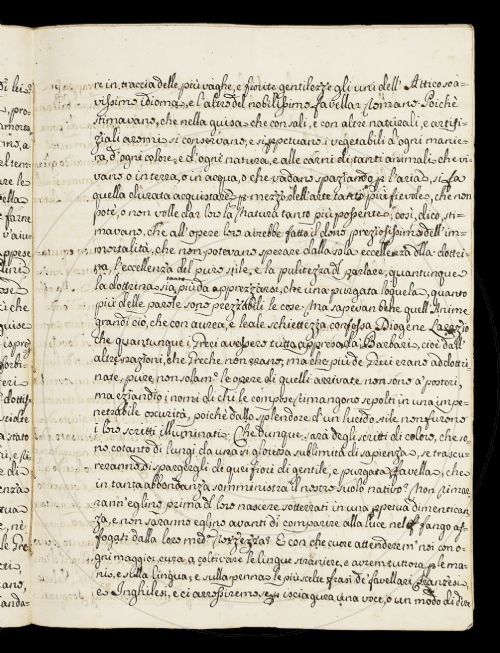 re in traccia delle più vaghe, e fiorite gentilezze gli uni dell' Attico soa=
vissimo idioma, e l'altro del nobilissimo favellar Romano. Poichè
stimavano, che nella guisa che con sali, e con altre naturali, e artifi=
ziali aromi si conservano, e si perpetuano i vegetabili d'ogni manie=
ra, d'ogni colore, e d'ogni natura, e alle carni di tanti animali, che vi=
vano o in terra, o in acqua, o che vadano spaziando per l'aria, si fa
quella durata acquistare per mezzo dell'arte tanto più fievole, che non
potè, o non volle dar loro la Natura tanto più possente; così, dico, sti=
mavano, che all'opere loro avrebbe fatto il dono preziosissimo dell'im=
mortalità, che non potevano sperare dalla sola eccellenza della dottri=
na, l'eccellenza del puro stile, e la pulitezza del parlare, quantunque
la dottrina sia tanto più da apprezzarsi, che una purgata loquela, quanto
più delle parole sono prezzabili le cose. Ma sapevan bene quell'Anime
grandi ciò, che con aurea, e leale schiettezza confessa Diogene Laerzio
che quantunque i Greci avessero tutto appreso da' Barbari, cioè dall'
altre nazioni, che Greche non erano, ma che più de' Greci erano addottri=
nate, pure non solam.e le opere di quelli arrivate non sono a' posteri,
ma eziandio i nomi di chi le compose rimangono sepolti in una impe=
netrabile oscurità, poichè dallo splendore d'un lucido stile non furono
i loro scritti illuminati. Che dunque sarà degli scritti di coloro, che so=
no cotanto di lungi da una sì gloriosa sublimità di sapienza, se trascu=
reranno di spargergli di quei fiori di gentile, e purgata favella, che
in tanta abbondanza somministra il nostro suolo nativo? Non rimar=
ranno eglino prima del loro nascere sotterrati in una perpetua dimentican=
za, e non saranno eglino avanti di comparire alla luce nel fango af=
fogati dalla loro med.a rozzezza? E con che cuore attenderem noi con o=
gni maggior cura a coltivare le lingue straniere, e avrem tuttora per le ma=
ni, e sulla lingua, e sulla penna le più scelte frasi de' favellari Franzesi,
e Inghilesi, e ci arrossiremo se ci scia una voce, o un modo di dire